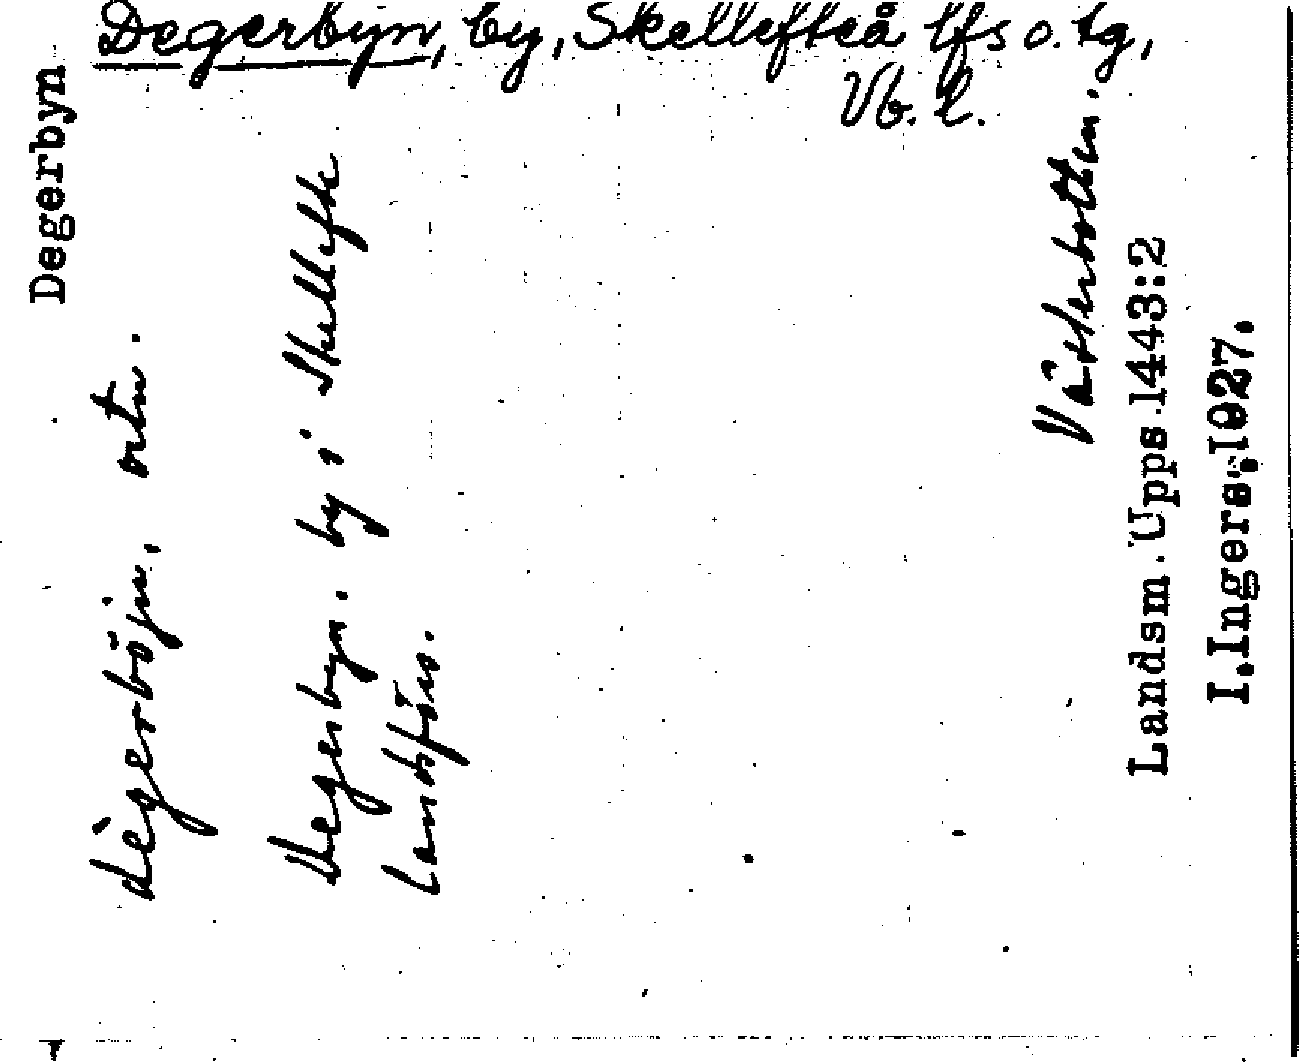 Degerbyn, by, Skellefteå lfs o. tg,
Vb. l.
Degerbyn
dègerböjn, ortn.
Degerbyn. by i Skellefte
landsförs.
Västerbotten.
Landsm. Upps.1443:2
I.Ingers,1927.